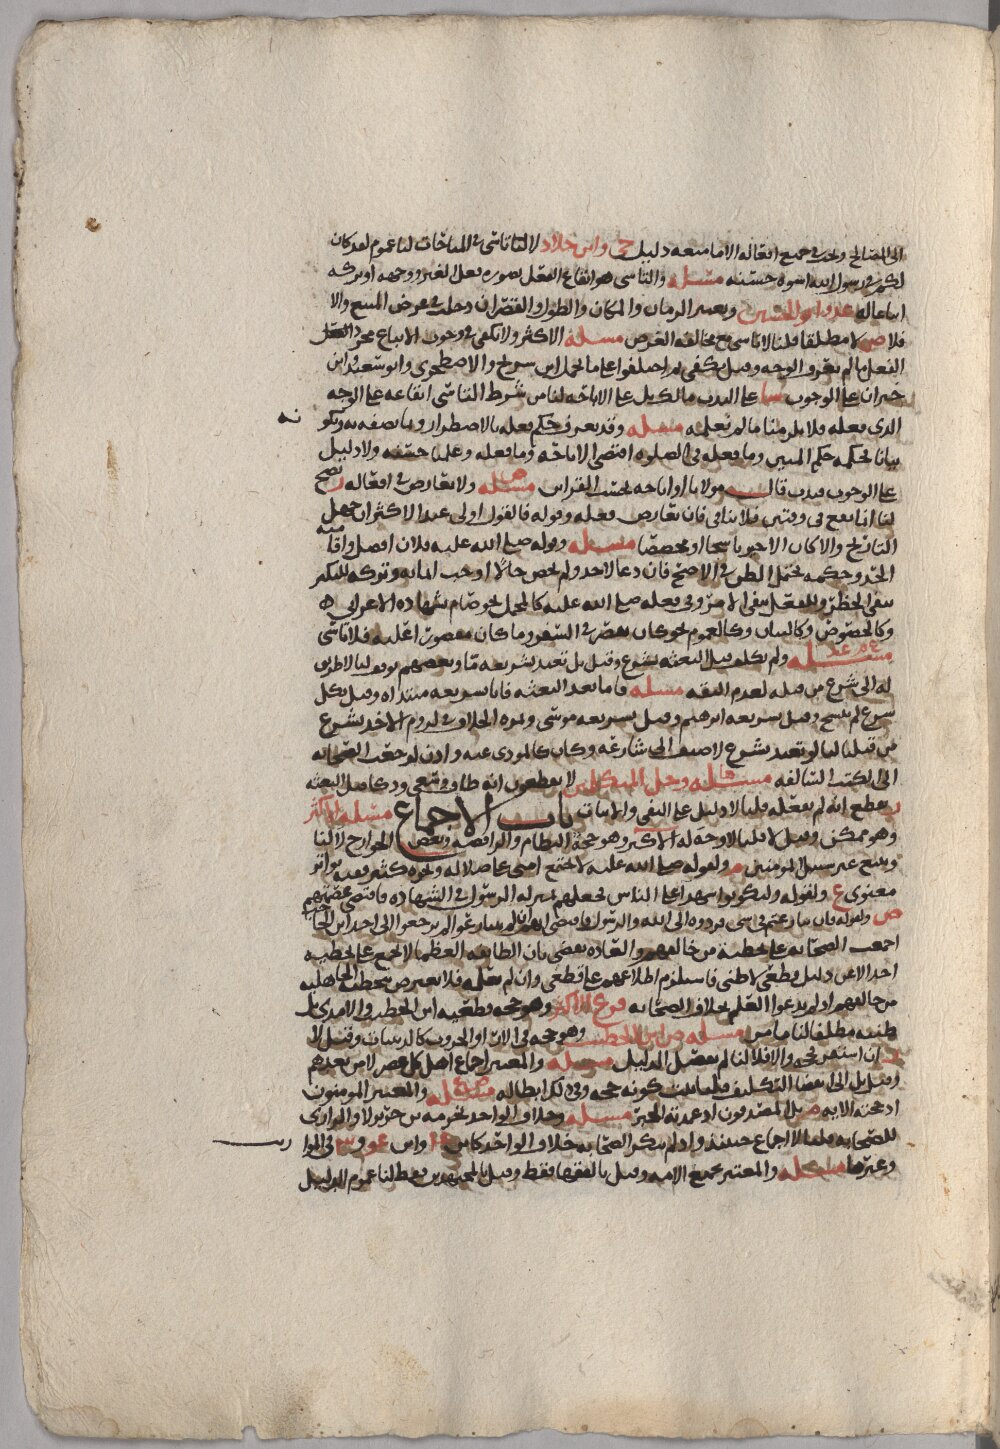 الى المصالح وتجب في جميع افعاله الا ما منعه دليل ح وابن خلاد لا لنا تاسي في المناخات لنا عموم لقد كان
لكم في رسول الله اسوة حسنة مسئلة والتاسي هو ايقاع الفعل بصورة فعل الغير ووجهه او تركه
اتباعا له ويعتبر الزمان والمكان والطول والقصر ان دخلت في عرض المتبع والا
فلا مطلقا قلنا لا تاسي مع مخالفة الغرض مسئلة الاكثر ولا يكفي في وجوب الاتباع مجرد الفعل
الفعل ما لم يعرف الوجه وقيل يكفي ثم اختلفوا علاما يحمل ابن سريج والاصطخري وابو سعيد وابن
خيران على الوجوب على الندب مالك بل على الاباحة لنا من شرط التاسي ايقاعه على الوجه
الذي فعله فلا يلزمنا ما لم نعلمه مسئلة وقد يعرف حكم فعله بالاضطرار وبالنصفه ويكون
بيانا لحكمه حكم المبين وما يفعله في الصلوة اقتضى الاباحة وما فعله وعلمنا حسنه ولا دليل
على الوجوب فندب قال مولانا او اباحة بحسب القرائن مسئلة ولا تعارض في افعاله يصح
لنا انما يقع في وقتين فلا تنافي فان تعارض فعله وقوله فالقول اولى عند الاكثر ان جهل
التاريخ والا كان الاخير ناسخا او مخصصا مسئلة وقوله صلى الله عليه فلان افضل واقامته
الحد وحكمه يحتمل الظن في الاصح فان دعا لاحد ولم يخص حالا اوجب ايمانه وتركه للنكير
ينفي الحظر وللفعل ينفي الامر وفي فعله صلى الله عليه كالمجمل نحو صام بشهادة الاعرابي
وكالخصوص وكالبيان وكالعموم نحو كان يقصر في السفر وما كان مقصورا عليه فلا تاسي
مسئلة ولم يكلف قبل البعثة بشرع وقيل بل تعبد بشريعة ما وبعضهم توقف لنا لا طريق
له الى شرع من قبله لعدم الثقة مسئلة فاما بعد البعثة فاتا بشريعة مبتداة وقيل بكل
شرع لم ينسخ وقيل بشريعة ابرهيم وقيل بشريعة موسى وثمرة الخلاف في لزوم الاخذ بشرع
من قبلنا لنا لو تعبد بشرع لاضيف الى شارعه وكان كالمودي عنه واذن لرجعت الصحابة
الى الكتب السالفة مسئلة وجل المتكلمين لا يقطعون انه طاف وسعى وذكا قبل البعثة
يقطع انه لم يفعله قلنا لا دليل على النفي والاثبات باب الاجماع مسئلة الاكثر
وهو ممكن وقيل لا قلنا لا وجه له الاكثر وهو حجة النظام والرافضة وبعض الخوارج لا لنا
ويتبع غير سبيل المومنين ولقوله صلى الله عليه لا تجتمع امتي على ضلالة ونحوه كثير وفيه تواتر
معنوي ع ولقوله ولتكونوا شهداء على الناس فجعلهم بمنزلة الرسول في الشهادة فاقتضى عصمتهم
ولقوله فان تنازعتم في شي فردوه الى الله والرسول فاقتضى انهم ان لم يتنازعوا لم يرجعوا الى احد ابن الحاجب
اجمعت الصحابة على تخطية من خالفهم والعادة تقضي بان الطائفة العظيمة لا تجمع على تخطية
احد الا عن دليل قطعي لا ظني فاستلزم اطلاعهم على قطعي وان لم ننقله فلا يعترض بتخطية الجاهلية
من خالفهم اذ لم يدعوا العلم بخلاف الصحابة فرع الاكثر وهو حجة قطعية ابن الخطيب والامدي بل
ظنية مطلقا لنا ما مر مسئلة ابن الخطيب وهو حجة في الاراء والحروب كالدينيات وقيل لا
ان استقر فحجة والا فلا لنا لم يفصل الدليل مسئلة والمعتبر اجماع اهل كل عصر لا من بعدهم
وقيل بل الى انقضا التكليف قلنا ثبت كونه حجة وفي ذلك ابطاله مسئلة والمعتبر المومنون
اذ حجته الاية بل المصدقون اذ عمدته الخبر مسئلة وخلاف الواحد يخرمه من جرير لا والرازي
للصحابة قلنا لا اجماع حينئذ واذ لم ينكر الصحابة خلاف الواحد كابن عباس وابن في الموا
وغيرها مسئلة والمعتبر بجميع الامة وقيل بالفقها فقط وقيل بالمجتهدين فقط لنا عموم الدليل